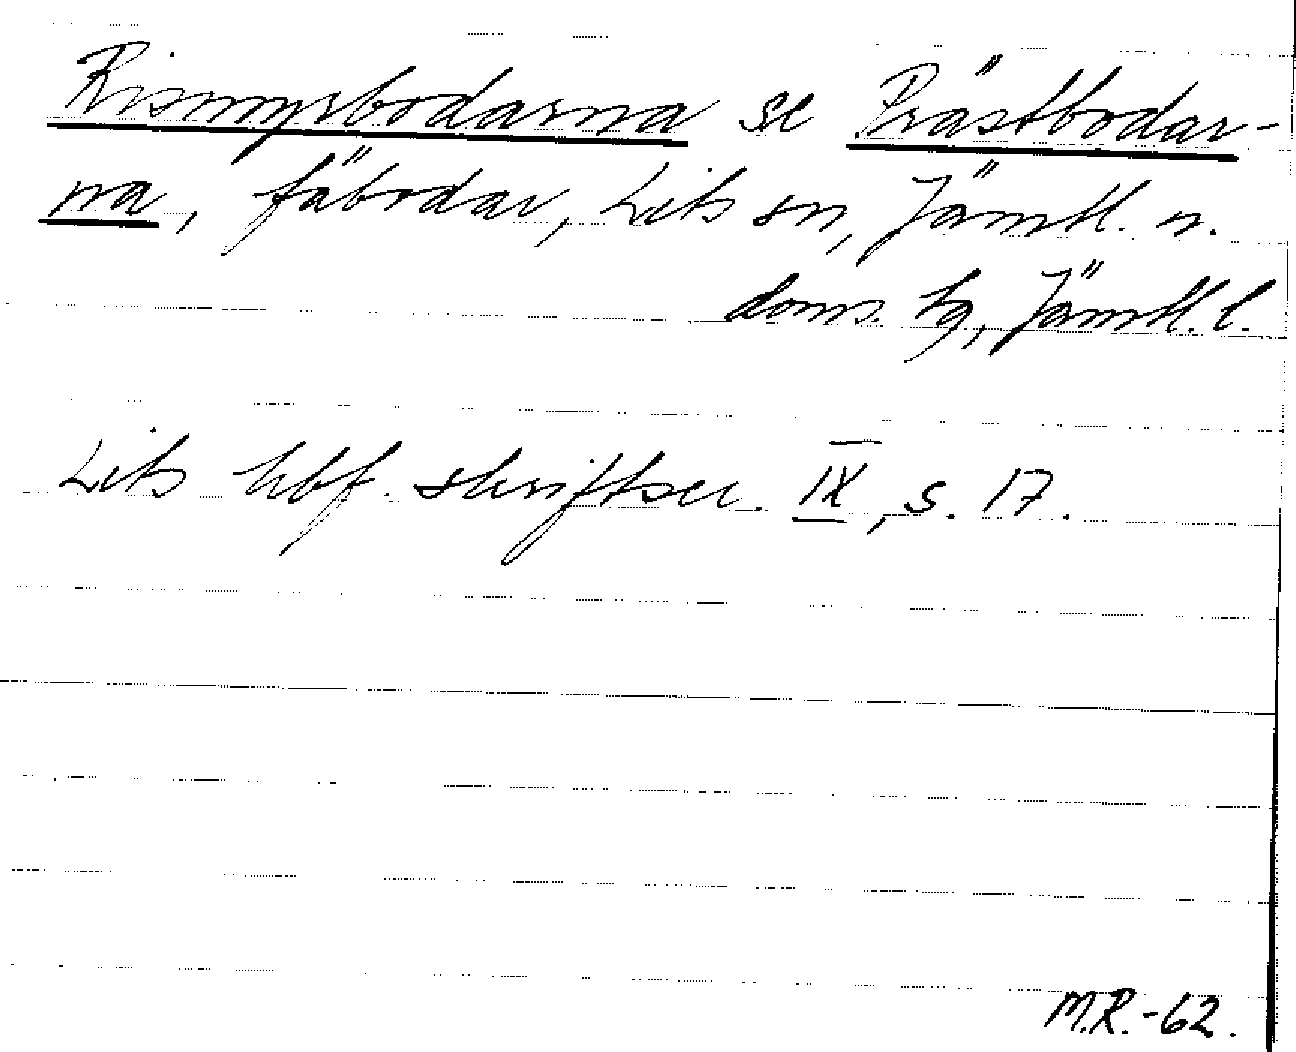 Rismyrbodarna se Prästbodar-
na, fäbodar, Lits sn, Jämtl. n.
doms. tg, Jämtl. l.
Lits hbf. skriftser. IX, s. 17.
M.R.-62.